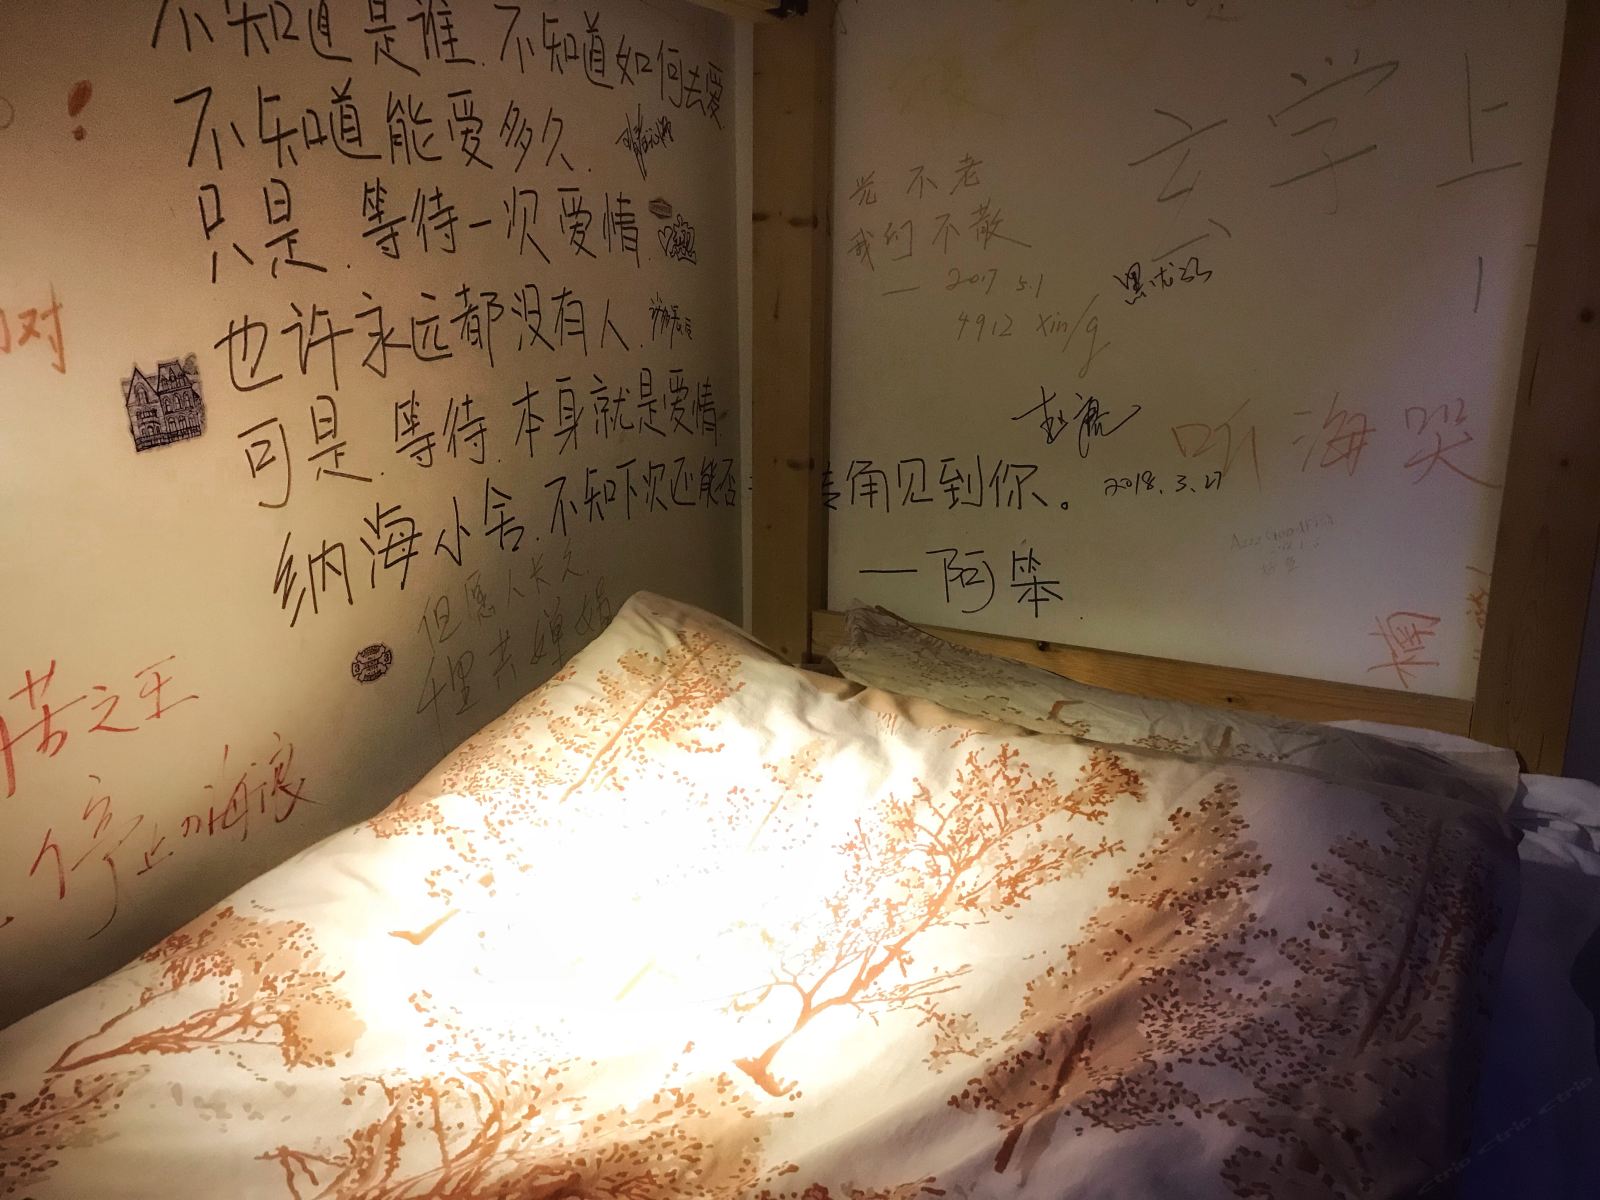 不知道是谁.不知道如何去爱
不知道能爱多久.
只是.等待一次爱情.
也许永远都没有人.
可是.等待.本身就是爱情.
纳海小舍.不知下次还能否 转角见到你。
—阿笨
但愿人长久
千里共婵娟
对
苦之乐
停止 海浪
玄学上
不老
我们不散
— 2017 5.1
4912 Xing
2018.3.27
听海哭
3 3
ctrip ctrip